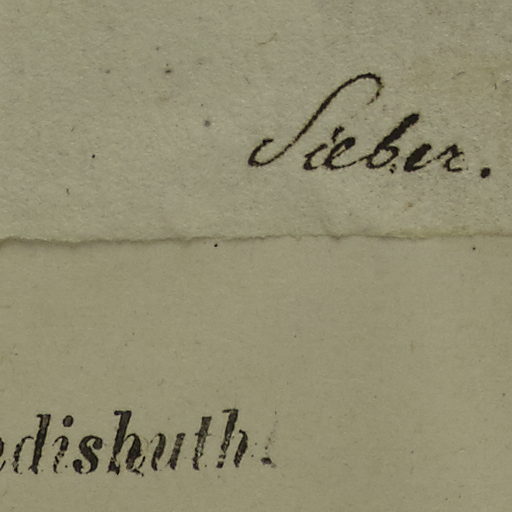 Sieber.
edishuth.